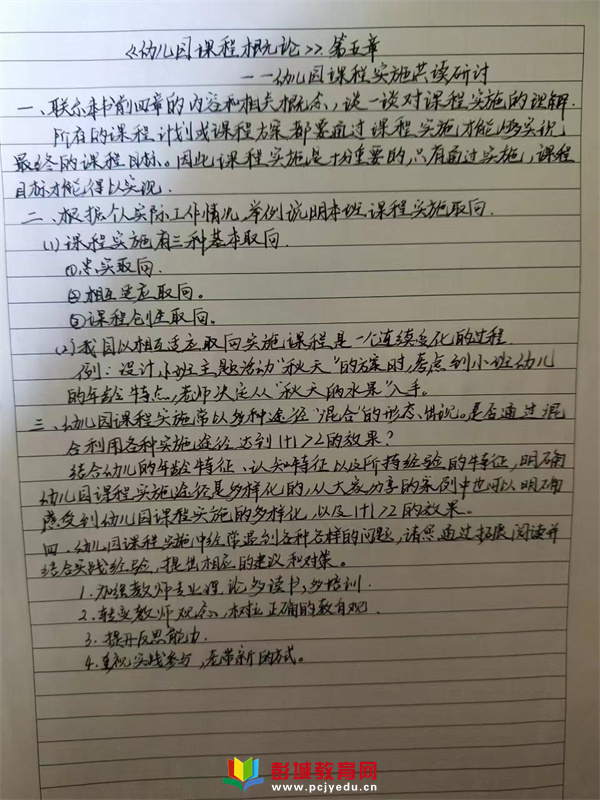 《幼儿园课程概论》第五章
——幼儿园课程实施共读研讨
一、联系本书前四章的内容和相关概念，谈一谈对课程实施的理解.
所有的课程计划或课程方案都要通过课程实施才能够实现
最终的课程目标。因此，课程实施是十分重要的，只有通过实施，课程
目标才能得以实现.
二、根据个人实际工作情况，举例说明本班课程实施取向.
(1) 课程实施有三种基本取向.
①忠实取向.
②相互适应取向。
③课程创生取向.
(2) 我园以相互适应取向实施课程是一个连续变化的过程.
例：设计小班主题活动"秋天"的方案时,考虑到小班幼儿
的年龄特点,老师决定从"秋天的水果"入手。
三、幼儿园课程实施常以多种途径"混合"的形态出现。是否通过混
合利用各种实施途径达到1+1>2的效果？
结合幼儿的年龄特征、认知特征以及所持经验的特征，明确
幼儿园课程实施途径是多样化的,从大家分享的案例中也可以明确
感受到幼儿园课程实施的多样化,以及1+1>2的效果。
四、幼儿园课程实施中经常遇到各种各样的问题,请您通过拓展阅读并
结合实践经验，提出相应的建议和对策。
1.加强教师专业理论多读书,多培训.
2.转变教师观念,树立正确的教育观.
3.提升反思能力.
4.重视实践参与,老带新的方式。
彭城教育网
www.pcjyedu.cn